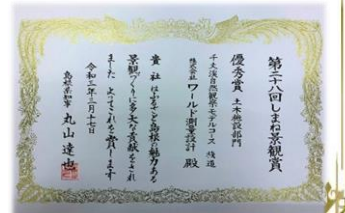 第二十八回しまね景観賞
優秀賞 土木施設部門
千丈渓自然観察モデルコース 桟道
株式会社 ワールド測量設計 殿
貴社はふるさと島根の魅力ある
景観づくりに多大な貢献をされ
ました よってこれを賞します
令和三年三月十七日
島根県知事 丸山達也